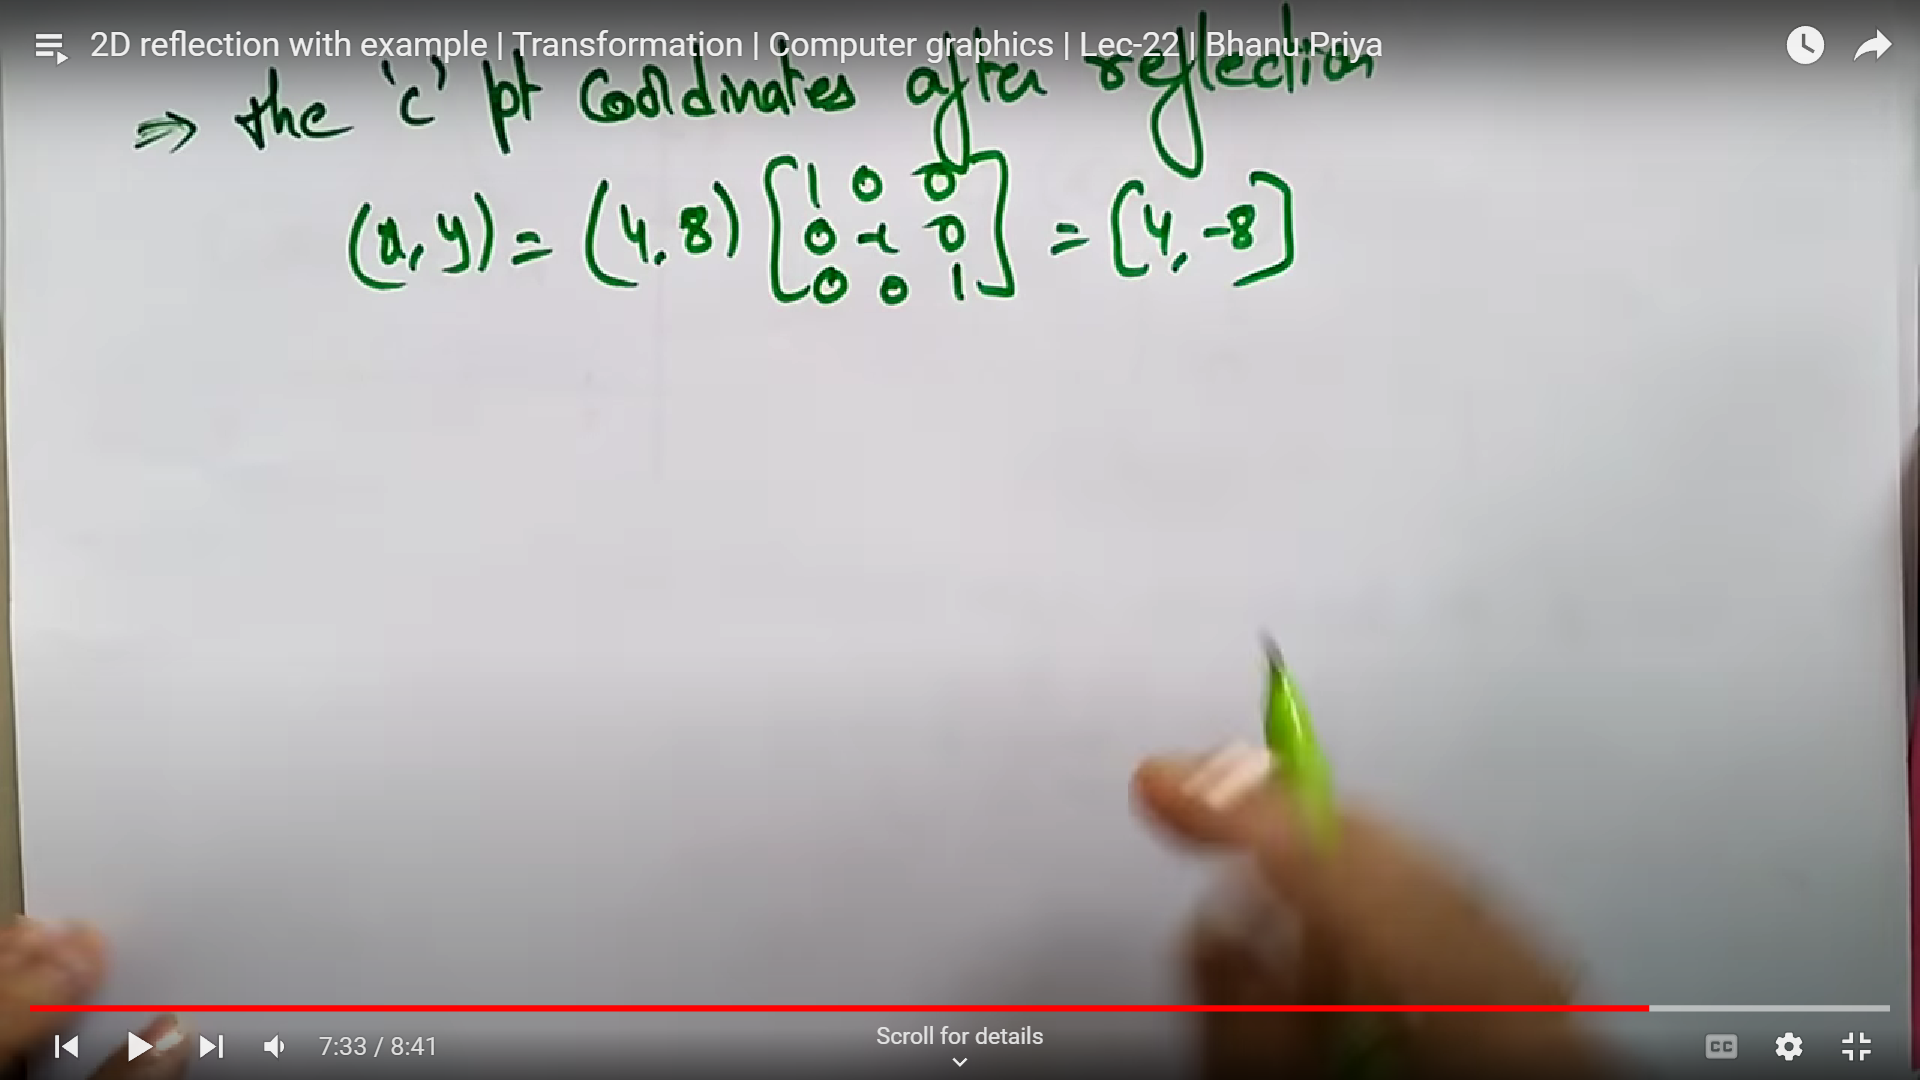 2D reflection with example | Transformation | Computer graphics | Lec-22 | Bhanu Priya
⇒ the 'c' pt Coordinates after reflection
(x, y) = (4, 8) [1 0 0
0 -1 0
0 0 1] = [4, -8]
Scroll for details
7:33 / 8:41
CC